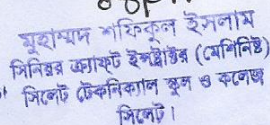 মুহাম্মদ শফিকুল ইসলাম
সিনিয়র ক্র্যাফ্ট ইন্সট্রাক্টর (মেশিনিষ্ট)
সিলেট টেকনিক্যাল স্কুল ও কলেজ
সিলেট।